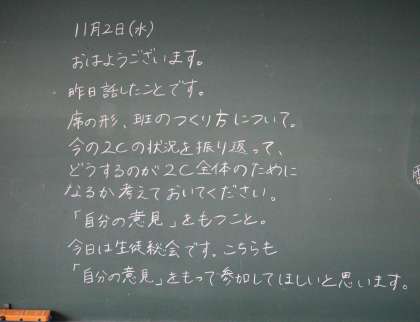 11月2日(水)
おはようございます。
昨日話したことです。
席の形、班のつくり方について。
今の2Cの状況を振り返って、
どうするのが2C全体のために
なるか考えておいてください。
「自分の意見」をもつこと。
今日は生徒総会です。こちらも
「自分の意見」をもって参加してほしいと思います。